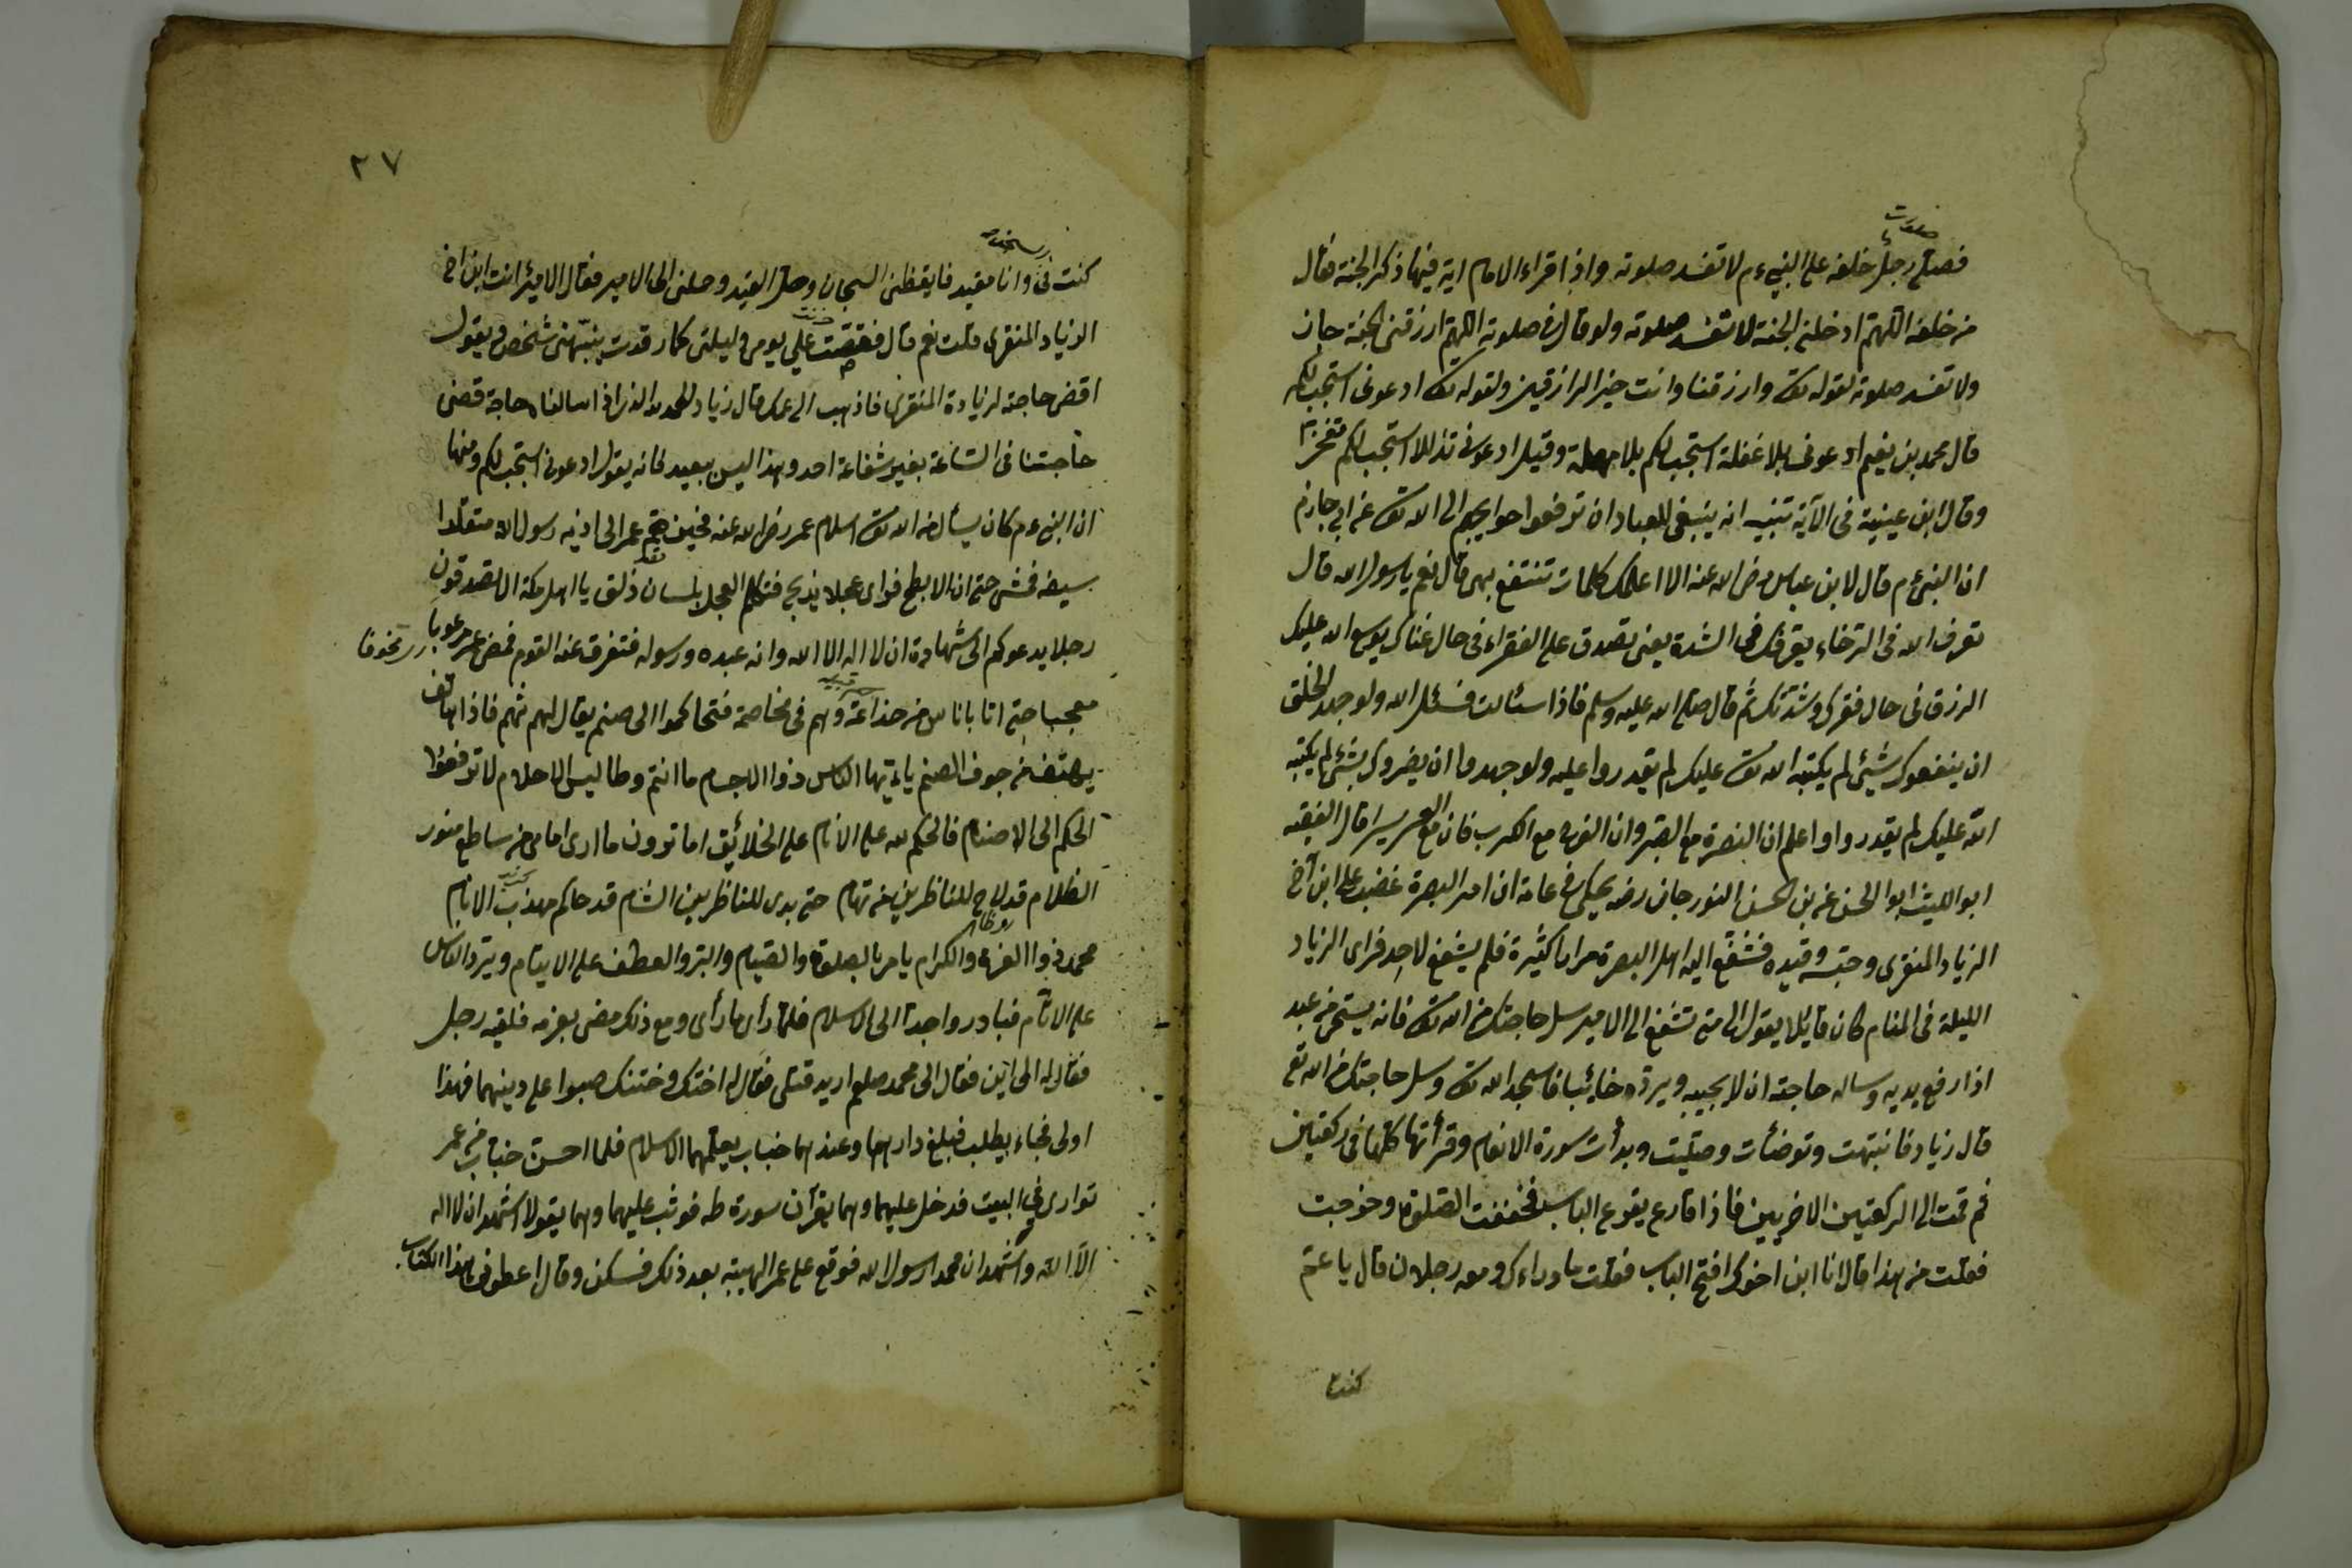 فصلى رجل خلفه على النبي ءم لا تفسد صلوته واذا قراء الامام اية فيها ذكر الجنة فقال
من خلفه اللهم ادخلني الجنة لا تفسد صلوته ولو قال في صلوته اللهم ارزقني الجنة جاز
ولا تفسد صلوته لقوله تعا وارزقنا وانت خير الرازقين ولقوله تعا ادعوني استجب لكم
قال محمد بن نعيم ادعوني بلا غفلة استجب لكم بلا مهلة وقيل ادعوني تذللا استجب لكم
وقال ابن عيينة في الآية تنبيه انه ينبغي للعباد ان ترفعوا حوايجهم الى الله تعا عن ابي حازم
ان النبي ءم قال لابن عباس رضى الله عنه الا اعلمك كلمات تنتفع بهن قال نعم يا رسول الله قال
تعرف الله في الرخاء يعرفك في الشدة يعنى تصدق على الفقراء في حال غناك يوسع الله عليك
الرزق في حال فقرك وشدتك ثم قال صلى الله عليه وسلم فاذا سئالت فسئل الله ولو جهد الخلق
ان ينفعوك بشئ لم يكتبه الله تعا عليك لم يقدروا عليه ولو جهدوا ان يضروك بشئ لم يكتبه
الله عليك لم يقدروا واعلم ان النصرة مع الصبر وان الفرح مع الكرب فان مع العسر يسرا قال الفقيه
ابو الليث ابو الحسن عن بن الحسن النورجاني رضه يحكى في عامة ان امير البصرة غضب على ابن اخ
الزياد المنقرى وحبسه وقيده فشفع اليه اهل البصرة مرارا كثيرة فلم يشفع لاحد فراى الزياد
الليلة في المنام كان قايلا يقول الى متى تشفع الى الامير سل حاجتك من الله تعا فانه يستحى من عبد
اذا رفع يديه وساله حاجته ان لا يجيبه ويرده خائبا فاسجد الله تعا وسل حاجتك من الله تع
قال زياد فانتبهت وتوضأت وصليت وبدأت سورة الانعام وقرأتها كلها في ركعتين
ثم قمت الى الركعتين الاخريين فاذا قارع يقرع الباب فخففت الصلوة وخرجت
فقلت من هذا قال انا ابن اخوك افتح الباب فقلت ما وراءك ومعه رجلان قال يا عم
كنت
٢٧
كنت في وانا مقيد فايقظنى السجان وحل القيد وحملنى الى الامير فقال الامير انت ابن اخ
الزياد المنقرى قلت نعم قال فقصت على يومى وليلتى كلما رقدت ينبهنى شخص ويقول
اقض حاجة لزيادة المنقرى فاذهب الى عمك قال زياد الحمد لله الذى اذا سالناه حاجة قضى
حاجتنا في الساعة بغير شفاعة احد وهذا ليس ببعيد لانه يقول ادعوني استجب لكم ومنها
ان النبي ءم كان يسأل من الله تعا اسلام عمر رضى الله عنه فحين هجم عمر الى اذيه رسول الله متقلدا
سيفه فمشى حتى ان الابطح فراى عجلا يذبح فتكلم العجل بلسان ذلق يا اهل مكة الا تصدقون
رجلا يدعوكم الى شهادة ان لا اله الا الله وانه عبده ورسوله فتفرق عنه القوم فمضى عمر مرعوبا
معجبا حتى اتا باناس من خزاعة وهم في مخاصمة فتحاكموا الى صنم يقال لهم ثهم فاذا هاتف
يهتف من جوف الصنم يا ايتها الناس ذوا الاجسام ما انتم وطاليس الاحلام لا ترفعوا
الحكم الى الاصنام فالحكم لله على الانام على الخلائق اما ترون ما ارى امامى من ساطع منور
الظلام قد لاح للناظرين من تهام حتى بدى للناظرين الشام قد حاكم مهذب الانام
محمد ذوا العز والكرام يامر بالصلوة والصيام والبر والعطف على الايتام ويرد الناس
على الاثام فبادروا جدا الى الاسلام فلما رأى ما رأى ومع ذلك مضى بعزمه فلقيه رجل
فقال له الى اين فقال الى محمد صلعم اريد قتلى فقال له اختك وختنك صبوا على دينهما فهذا
اولى فجاء يطلب فبلغ دارهما وعندهما خباب يعلمهما الاسلام فلما احسن خباب من عمر
توارى في البيت فدخل عليهما وهما يقرآن سورة طه فوثب عليهما وهما يقولا اشهد ان لا اله
الا الله واشهد ان محمدا رسول الله فوقع على عمر الهيبة بعد ذلك فسكن وقال اعطونى هذا الكتاب